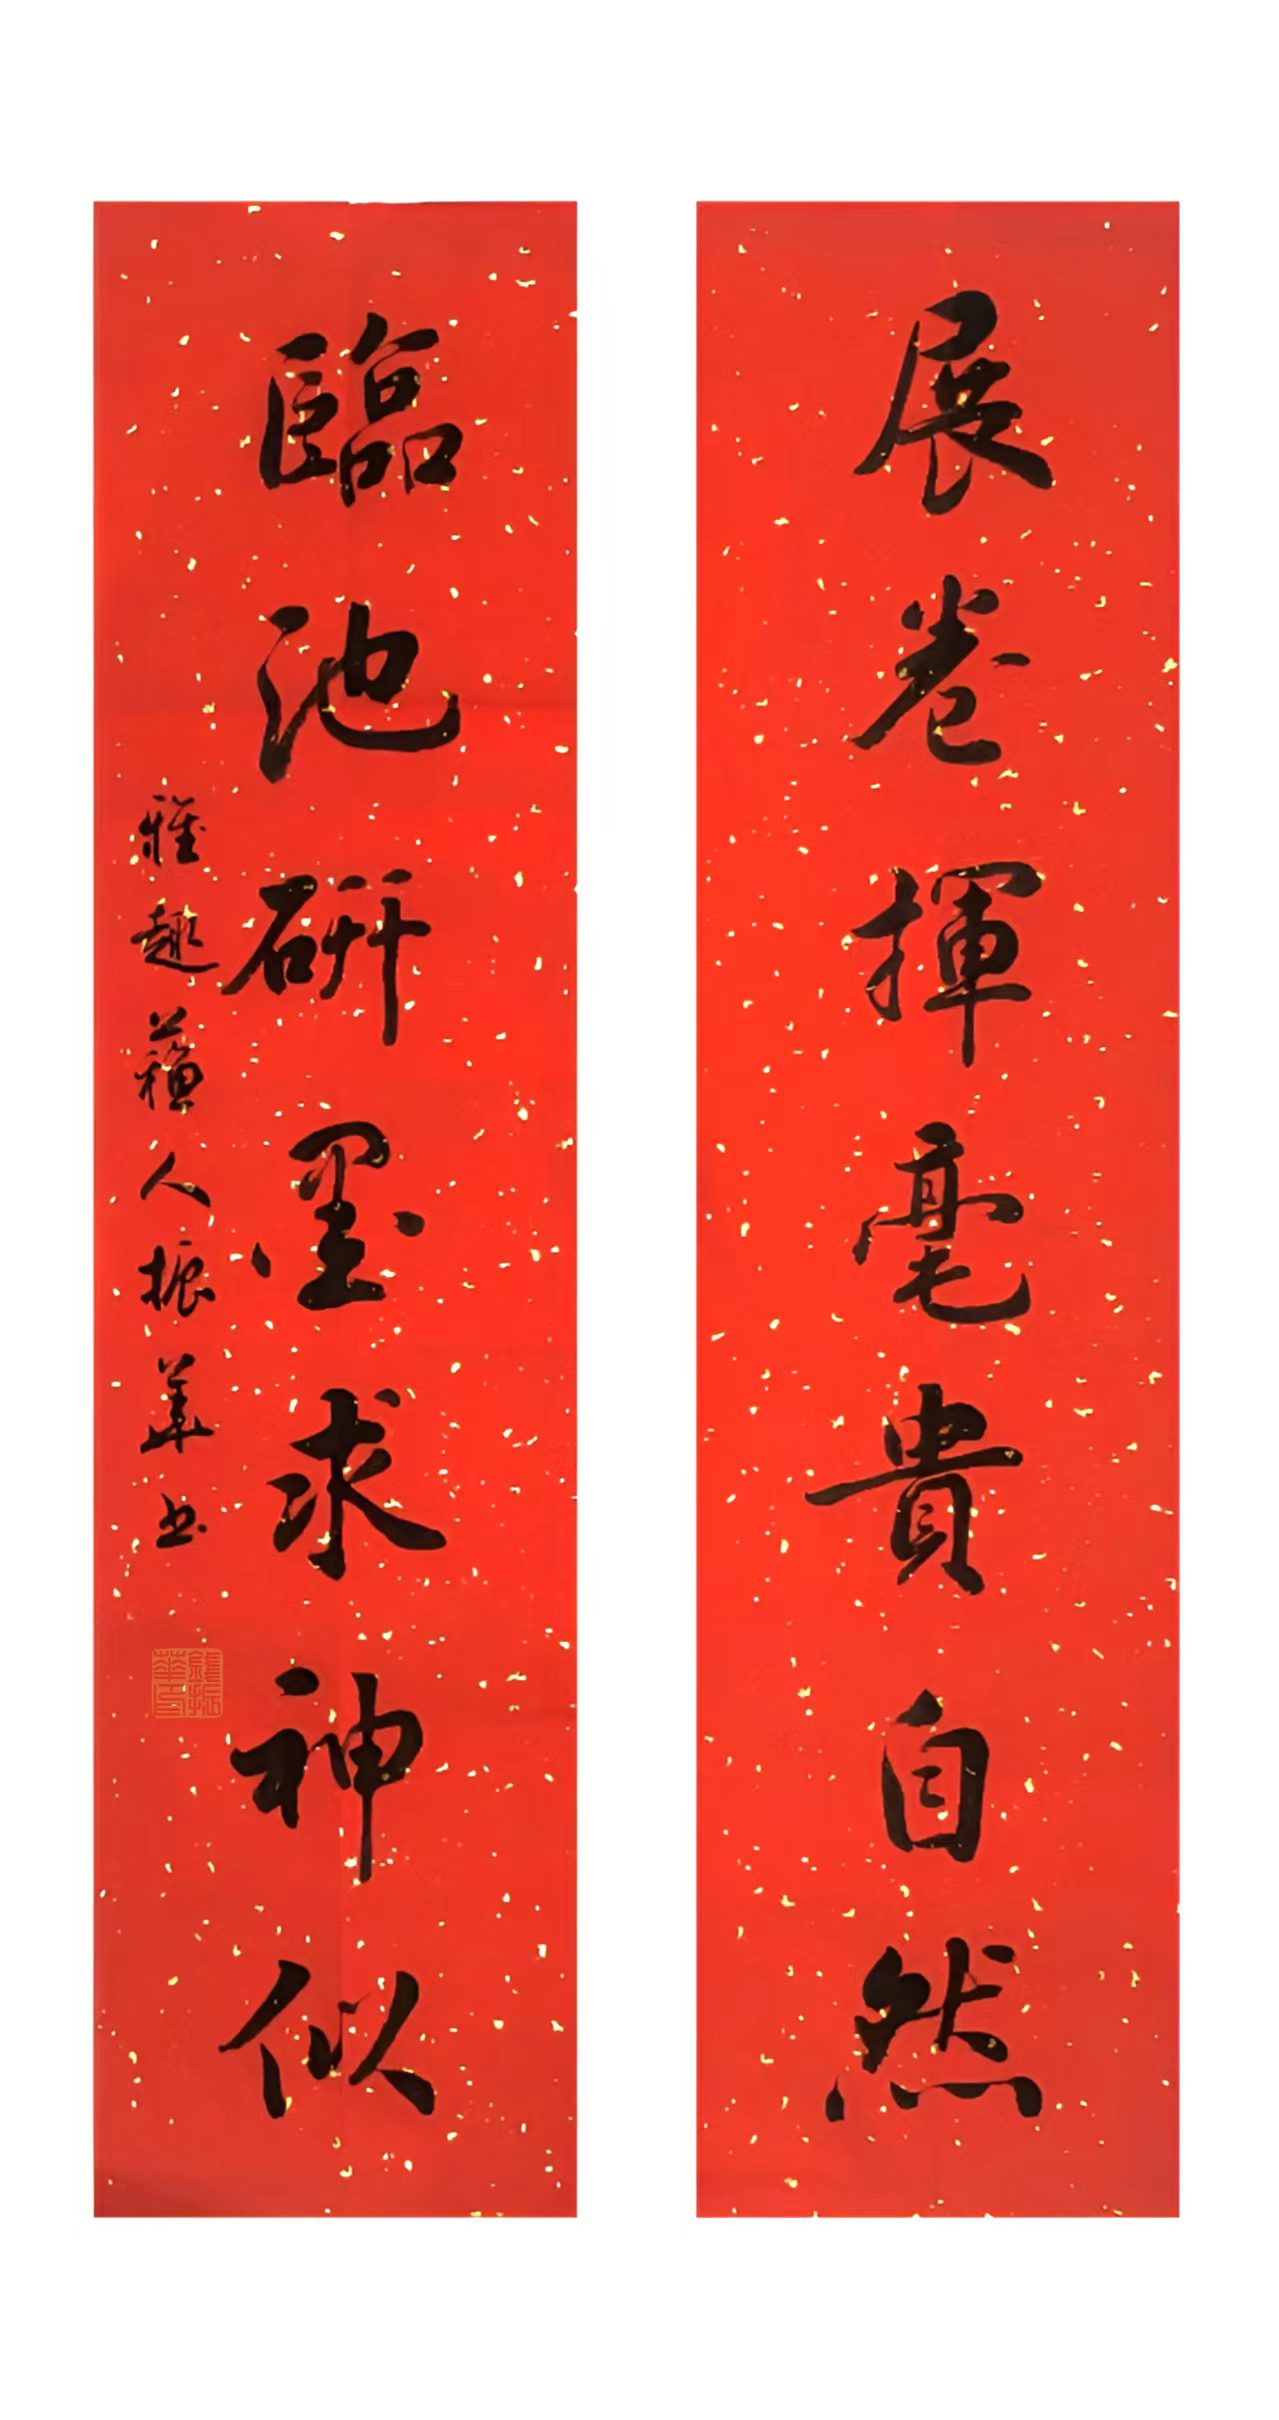 展卷揮毫貴自然
臨池研墨求神似
雅趣蘓人振華书